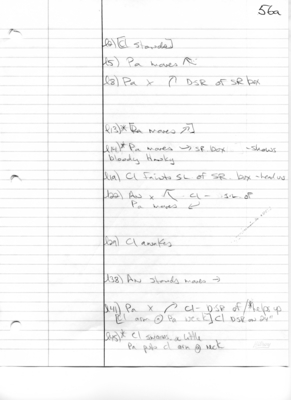 56a
(2) [Cl stands]
(5) Pa moves ↖
(8) Pa x ↗ DSR of SR box
(13)* [Pa moves ↗?]
(14)* Pa moves → SR box. -shows
bloody Hanky
(19) Cl Faints SL of SR. box -
(22) An x ↖ Cl - SL of
Pa moves ↙
(29) Cl awakes
(38) An stands moves →
(41) Pa x ↗ Cl - DSR of / * helps up
[Cl arm @ Pa neck] Cl DSR on 2
* Cl swoons a little
Pa puts Cl arm @ neck